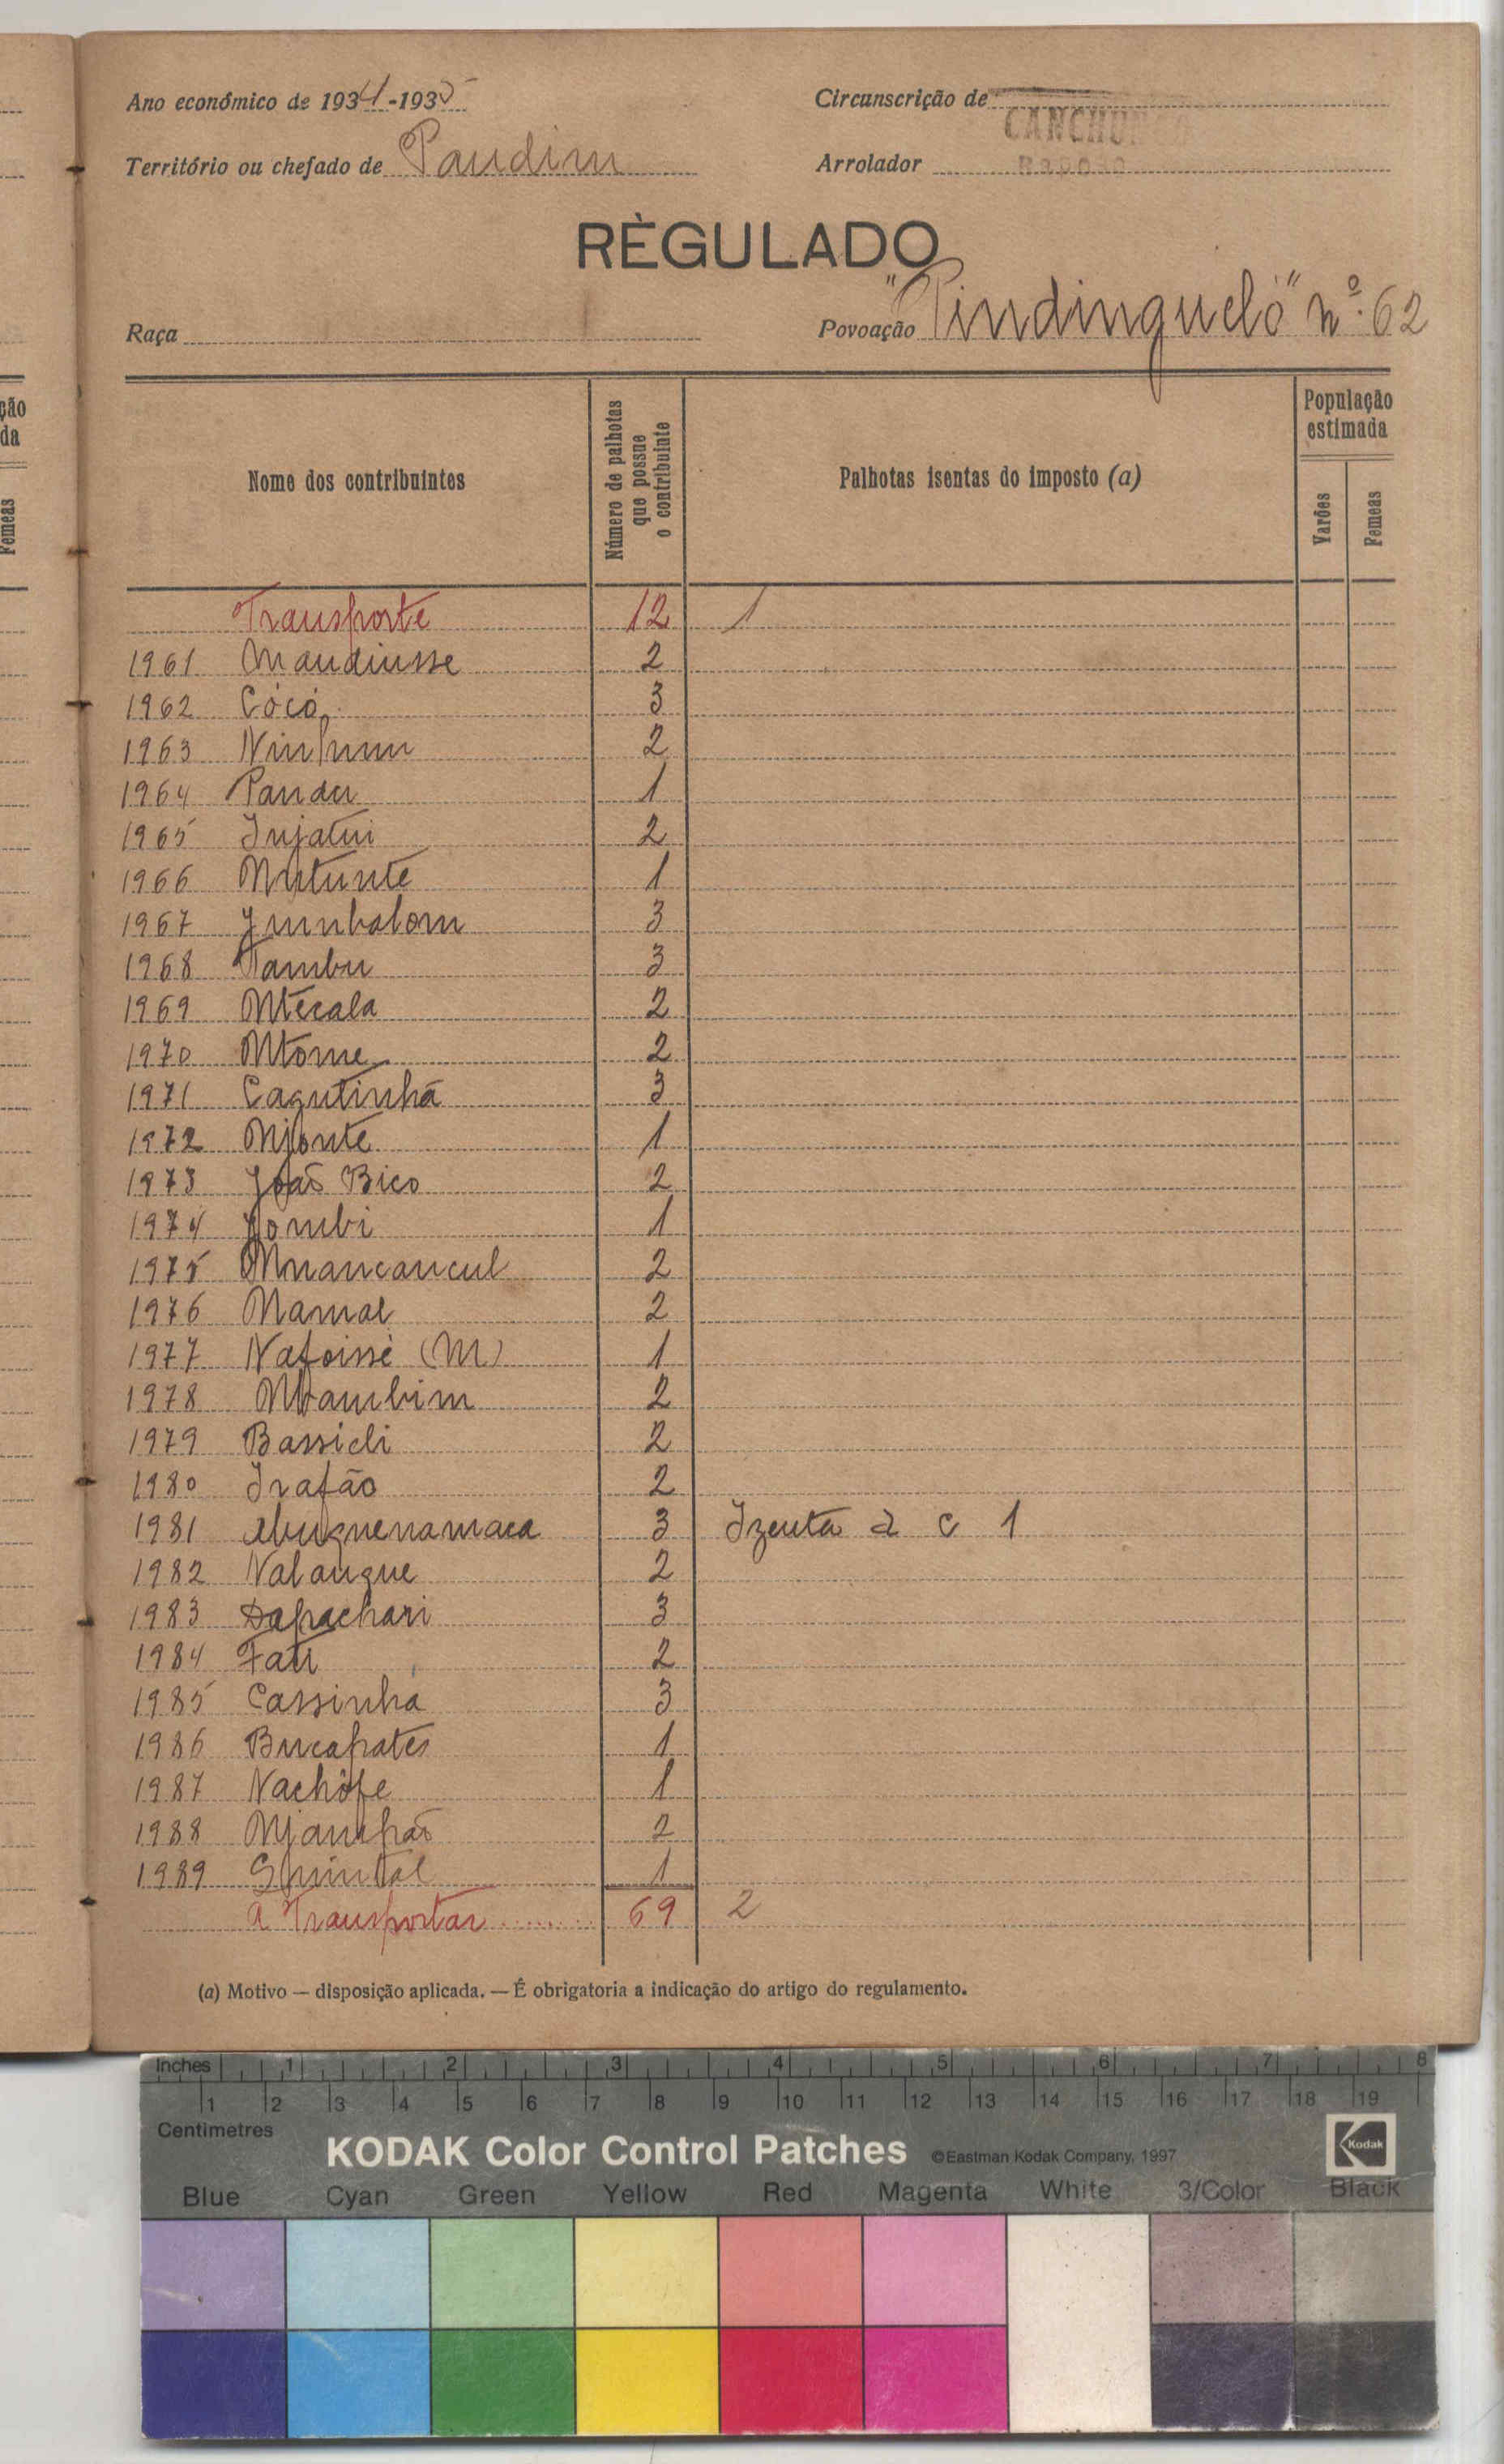 Ano económico de 1934-1935
Circunscrição de CANCHUNGO
Território ou chefado de Pandim
Arrolador Raposo
RÈGULADO
Raça
Povoação "Pindingueló" nº. 62
Nome dos contribuintes
Número de palhotas que possue o contribuinte
Palhotas isentas do imposto (a)
População estimada
Varões
Femeas
Transporte 12 1
1961 Mandiusse 2
1962 Cócó 3
1963 Ninhum 2
1964 Panda 1
1965 Injatui 2
1966 Mutunte 1
1967 Jumbalom 3
1968 Tambu 3
1969 Ntecala 2
1970 Ntome 2
1971 Cagutinhã 3
1972 Njonte 1
1973 João Bico 2
1974 Jombi 1
1975 Muancancul 2
1976 Mamal 2
1977 Nafoissé (M) 1
1978 Mbambim 2
1979 Bassicli 2
1980 Irafão 2
1981 3 Izenta a c 1
1982 Nalangue 2
1983 Dapachari 3
1984 Fati 2
1985 Cassinha 3
1986 Bucapates 1
1987 Nachófe 1
1988 2
1989 Quintal 1
A Transportar 69 2
(a) Motivo — disposição aplicada. — É obrigatoria a indicação do artigo do regulamento.
ção
da
Femeas
Inches 1 2 3 4 5 6 7 8
1 2 3 4 5 6 7 8 9 10 11 12 13 14 15 16 17 18 19
Centimetres
KODAK Color Control Patches ©Eastman Kodak Company, 1997 Kodak
Blue Cyan Green Yellow Red Magenta White 3/Color Black